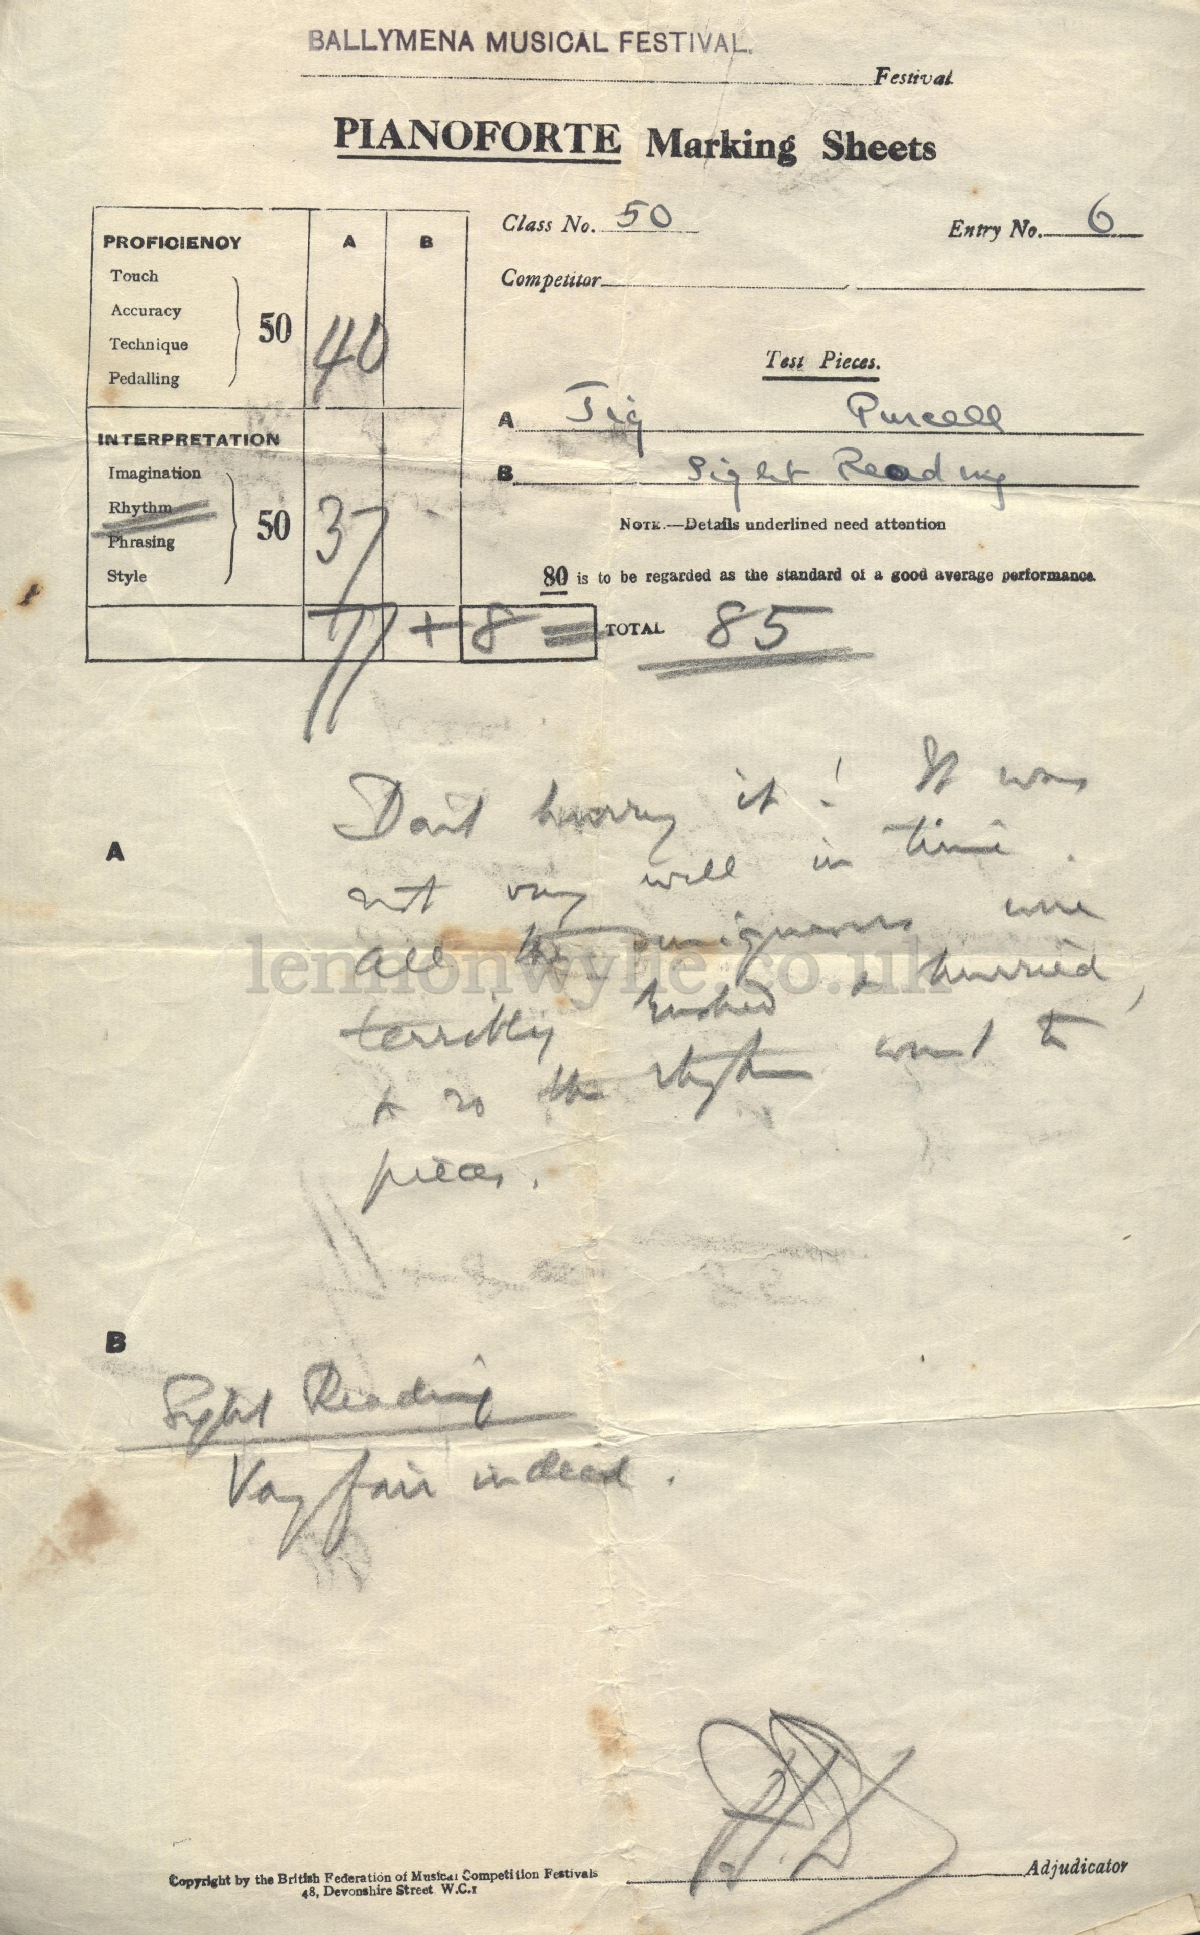 BALLYMENA MUSICAL FESTIVAL.
Festival
PIANOFORTE Marking Sheets
PROFICIENCY A B
Touch
Accuracy
Technique
Pedalling
50
40
INTERPRETATION
Imagination
Rhythm
Phrasing
Style
50
37
77 + 8 = TOTAL 85
Class No. 50 Entry No. 6
Competitor
Test Pieces.
A Jig Purcell
B Sight Reading
NOTE.—Details underlined need attention
80 is to be regarded as the standard of a good average performance.
A
Don't hurry it! It was
not very well in time.
All the semiquavers were
terribly rushed & hurried,
& so the rhythm went to
pieces.
lennonwylie.co.uk
B
Sight Reading
Very fair indeed.
Adjudicator
Copyright by the British Federation of Musical Competition Festivals
48, Devonshire Street W.C.1